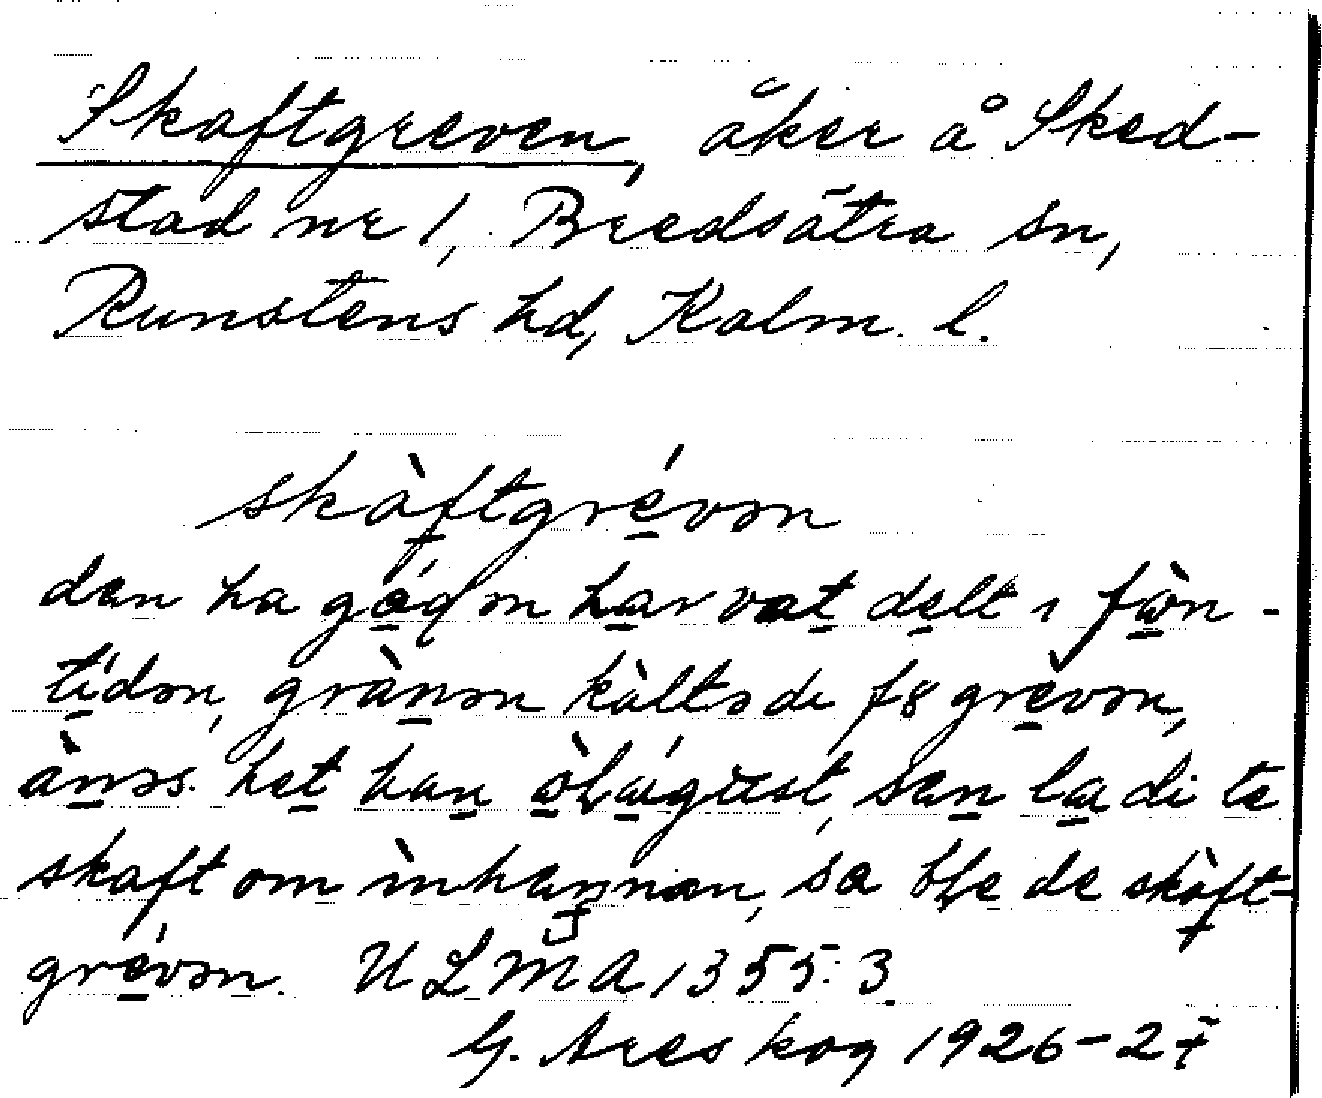 Skaftgreven, åker å Sked-
stad nr 1, Bredsätra sn,
Runstens hd, Kalm. l.
skàftgrévən
den ha gə́rdən har vat delt ı fòrn-
tídən, grànən kàltədı fö grèvən,
ànəs. het han sen la di te
skaft om ìnhannan, sa ble de skàft-
grévən. ULMA 1355:3
G. Areskog 1926-27